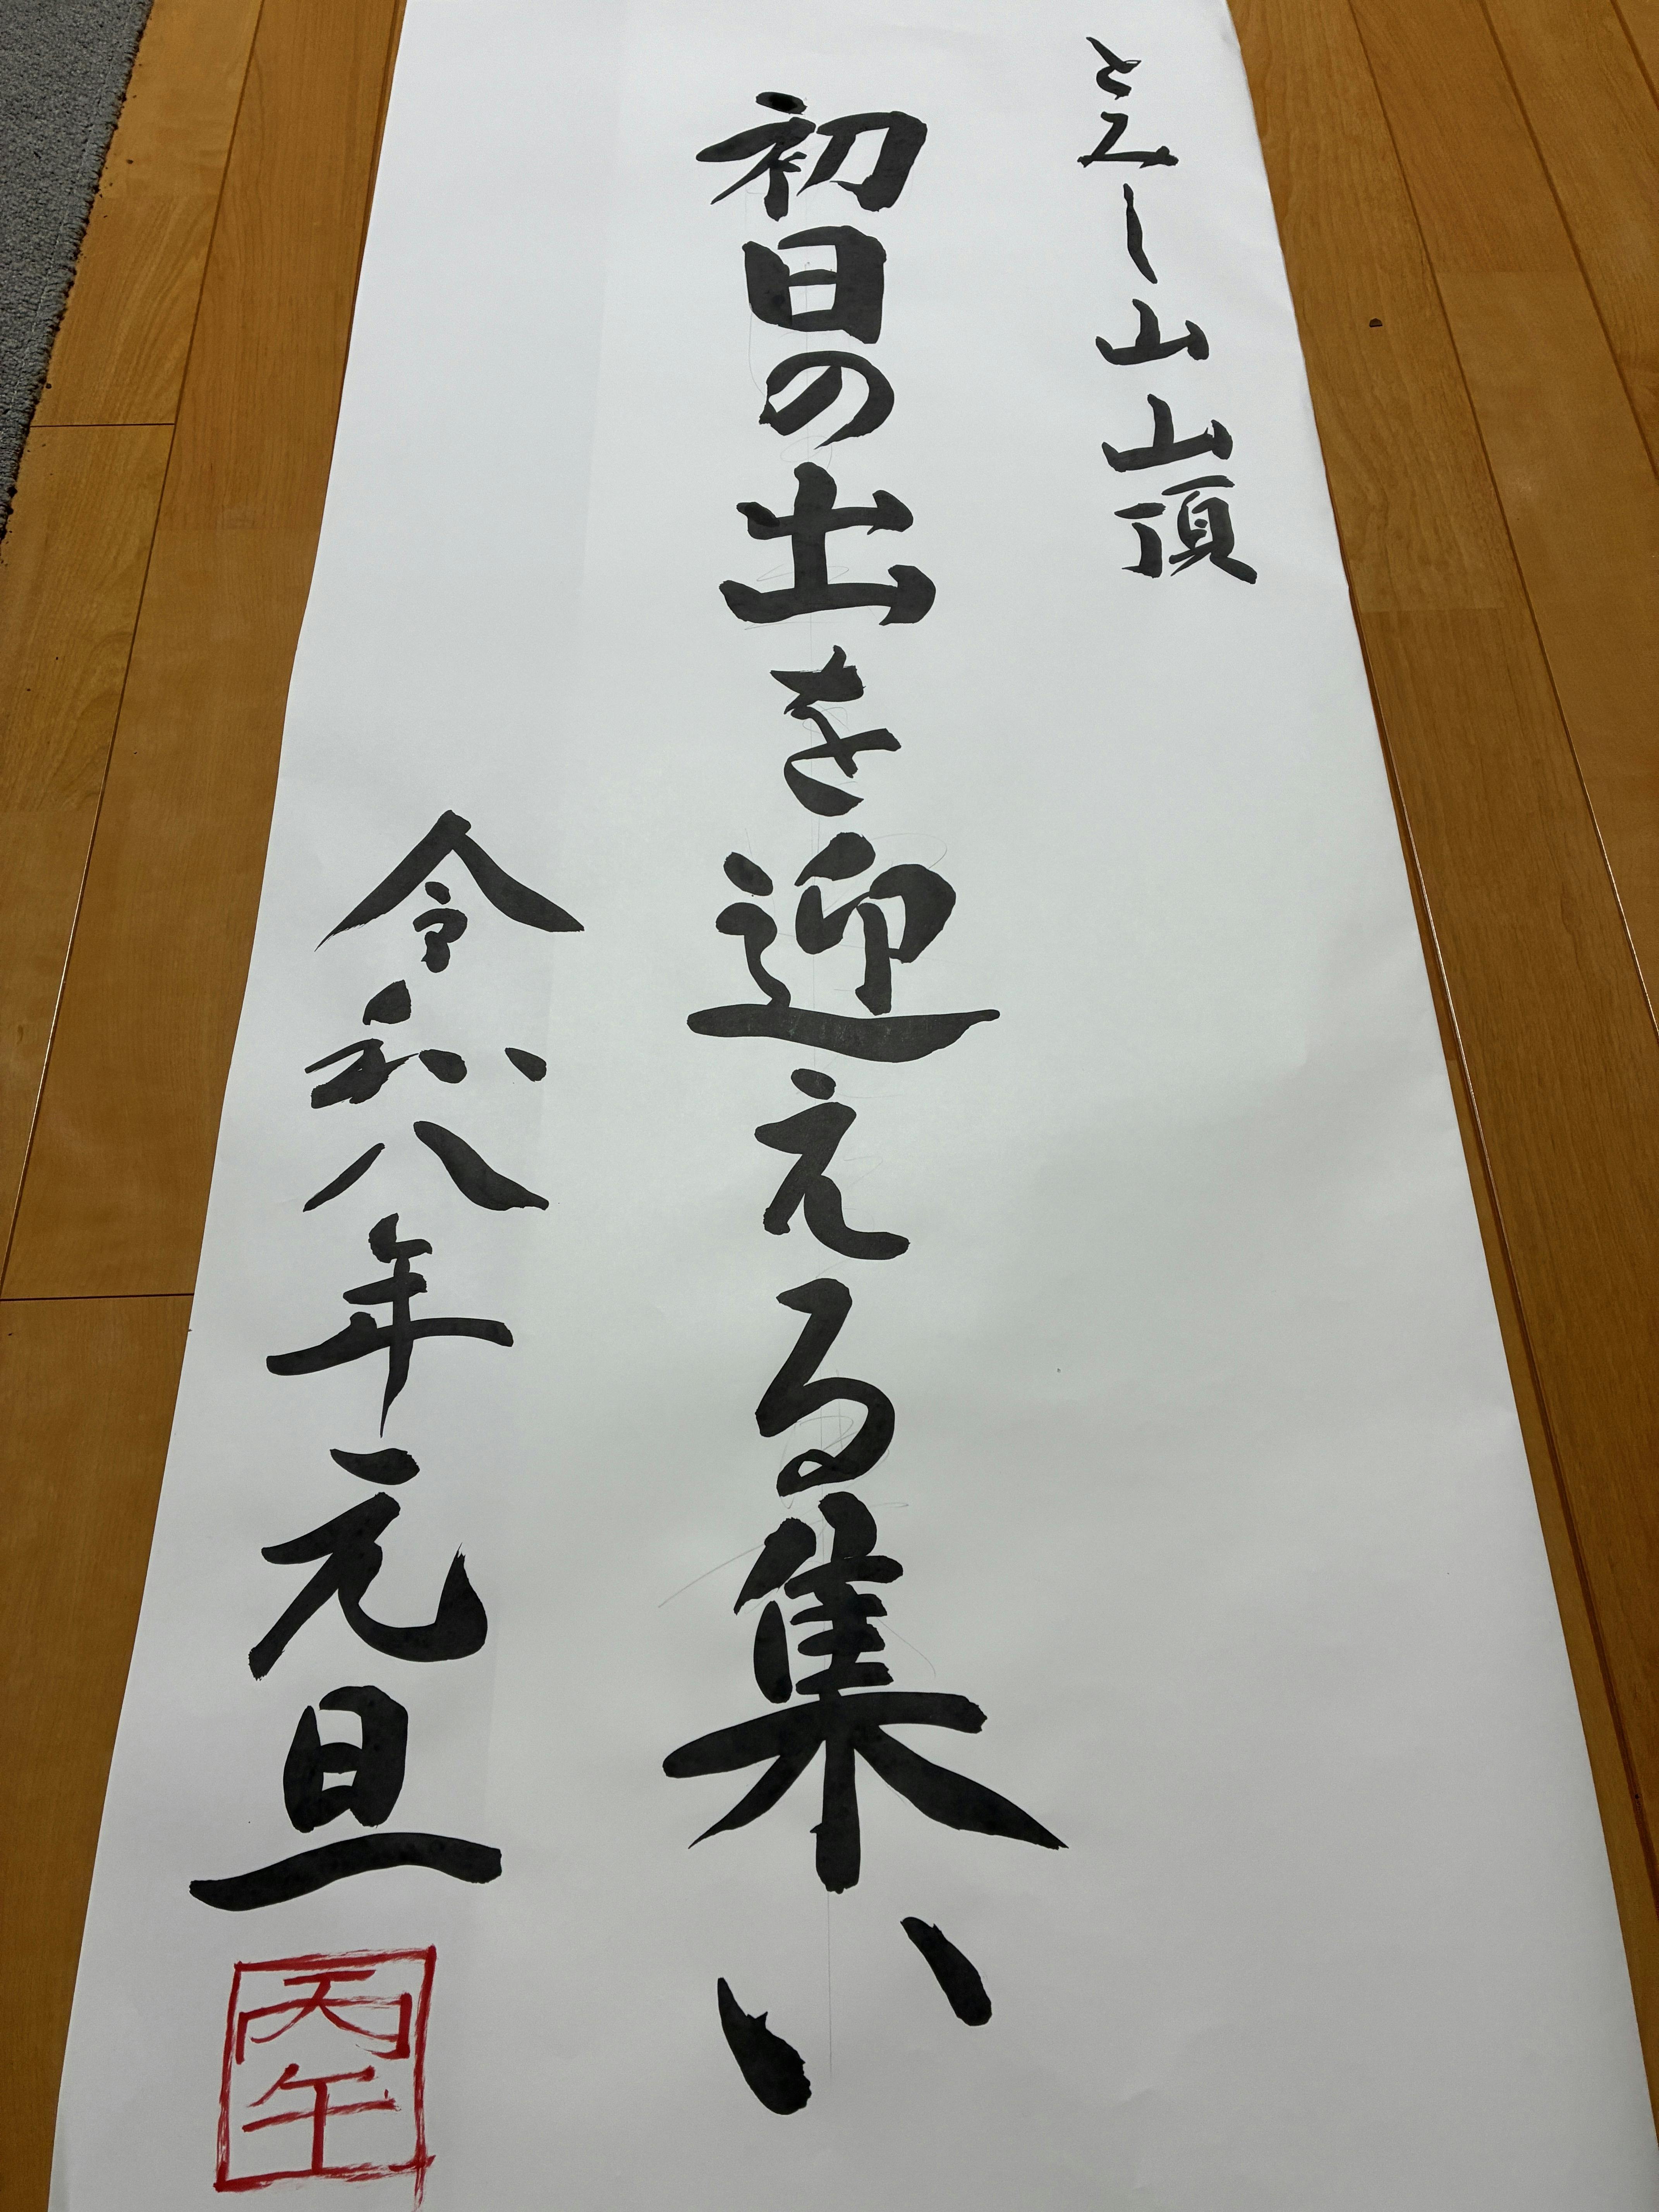 とみー山山頂
初日の出を迎える集い
令和八年元旦
丙午